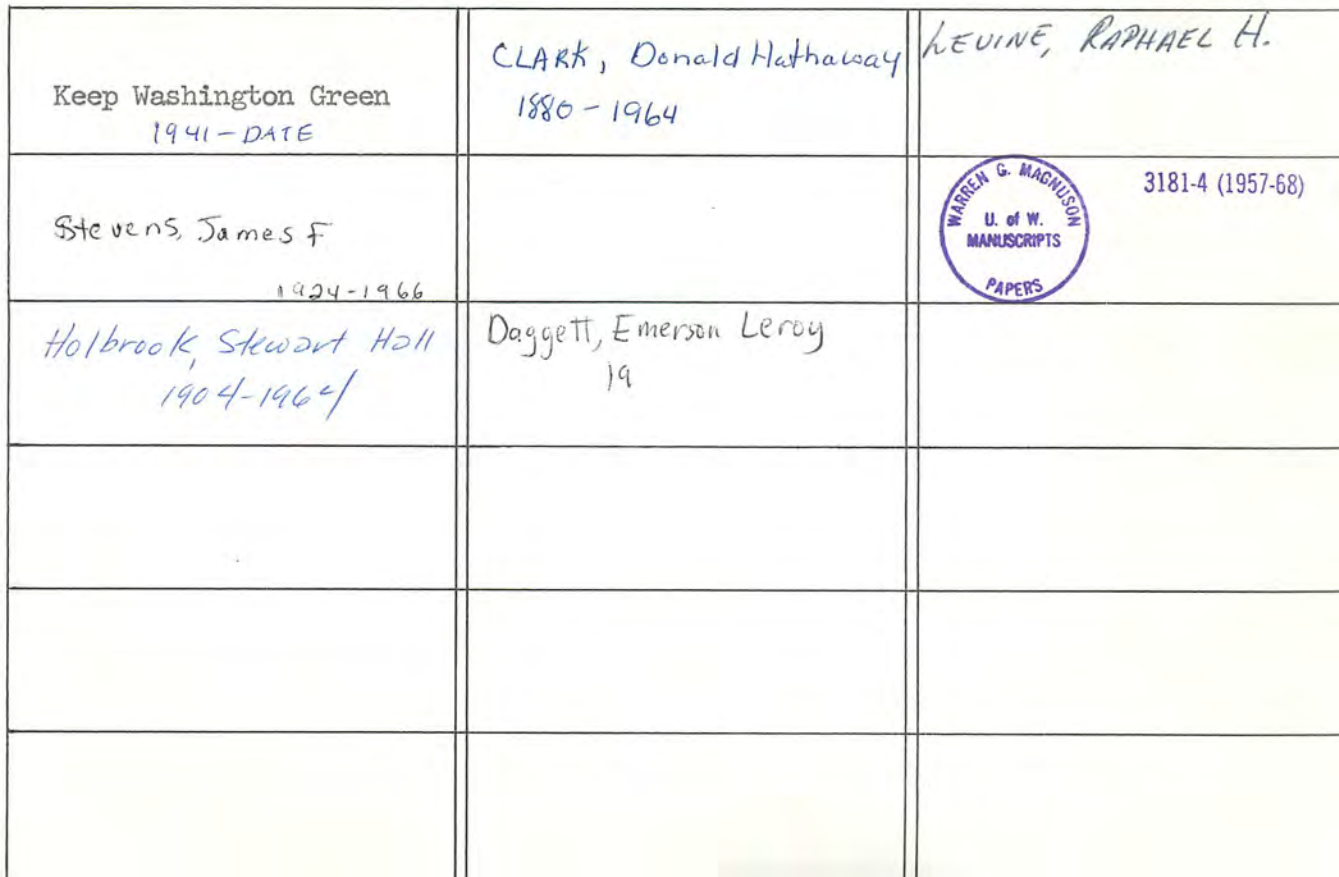 Keep Washington Green
1941-DATE
CLARK, Donald Hathaway
1880-1964
LEVINE, RAPHAEL H.
Stevens, James F
1924-1966
WARREN G. MAGNUSON
U. of W.
MANUSCRIPTS
PAPERS
3181-4 (1957-68)
Holbrook, Stewart Hall
1904-1964
Daggett, Emerson Leroy
19